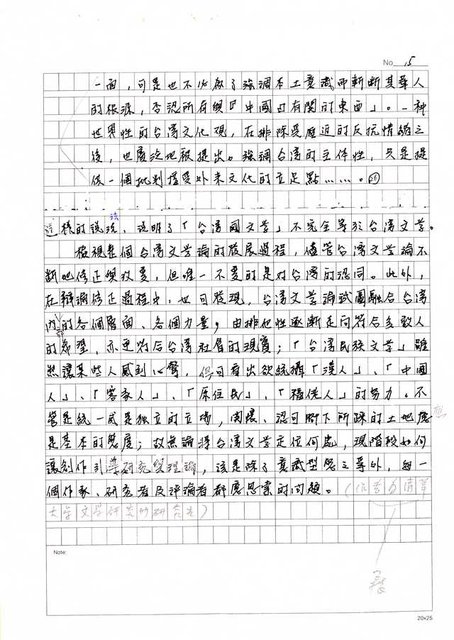 No. 15
一面,可是也不必為了強調本土意識而斬斷其華人
的根源,否認所有與『中國』有關的東西」。一种
世界性的台湾文化观,在排除受壓迫的反抗情緒之
後,也應該地被提出。強調台湾的主体性,只是提
供一個批判接受外來文化的立足點……。
這樣的說法,說明了「台湾國文学」不完全等於台湾文学。
檢視整個台湾文学論的發展過程,儘管台湾文学論不
断地修正與改変,但唯一不变的是对台湾的認同。此外,
在辯論修正過程中,也可發現,台湾文学論試圖融合台湾
內的各個層面、各個力量,由排他性逐漸走向符合多數人
的希望,亦更符合台湾社會的現實;「台湾民族文学」雖
然讓某些人感到心驚,但可看出欲統攝「漢人」、「中國
人」、「客家人」、「原住民」、「福佬人」的努力。不
管是統一或是獨立的立場,関懷、認同腳下所踩的土地應
是基本的態度;故無論將台湾文学定位何處,現階段如何
讓創作引導研究與理論,該是除了意識型態之爭外,每一
個作家、研究者及評論者都應思索的問題。(作者為清華
大學文學研究所研究生)
Note:
20×25